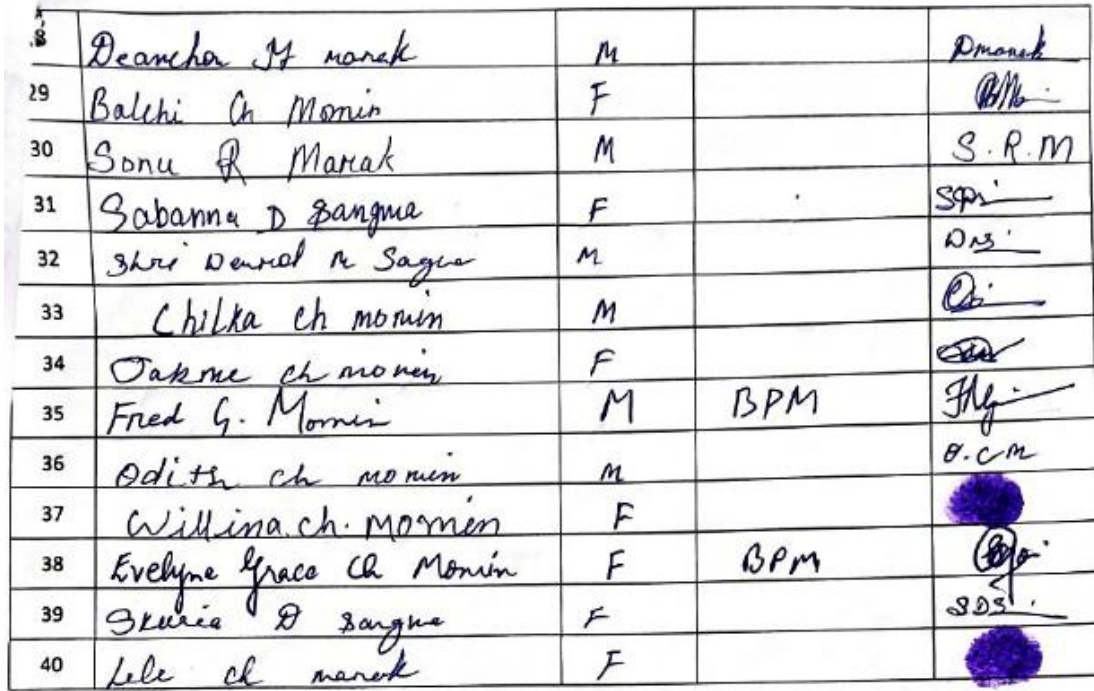 8 Deancha M marak M Dmarak
29 Balchi Ch Momin F
30 Sonu R Marak M S.R.M
31 Sabanna D Sangma F
32 Shri M Sagma M
33 Chilka Ch momin M
34 Jakme ch momin F
35 Fred G. Momin M BPM
36 Odith ch momin M O.C.M
37 Willina.ch.Momin F
38 Evelyne Grace Ch Momin F BPM
39 Skuria D Sangma F SDS.
40 Lele ch marak F